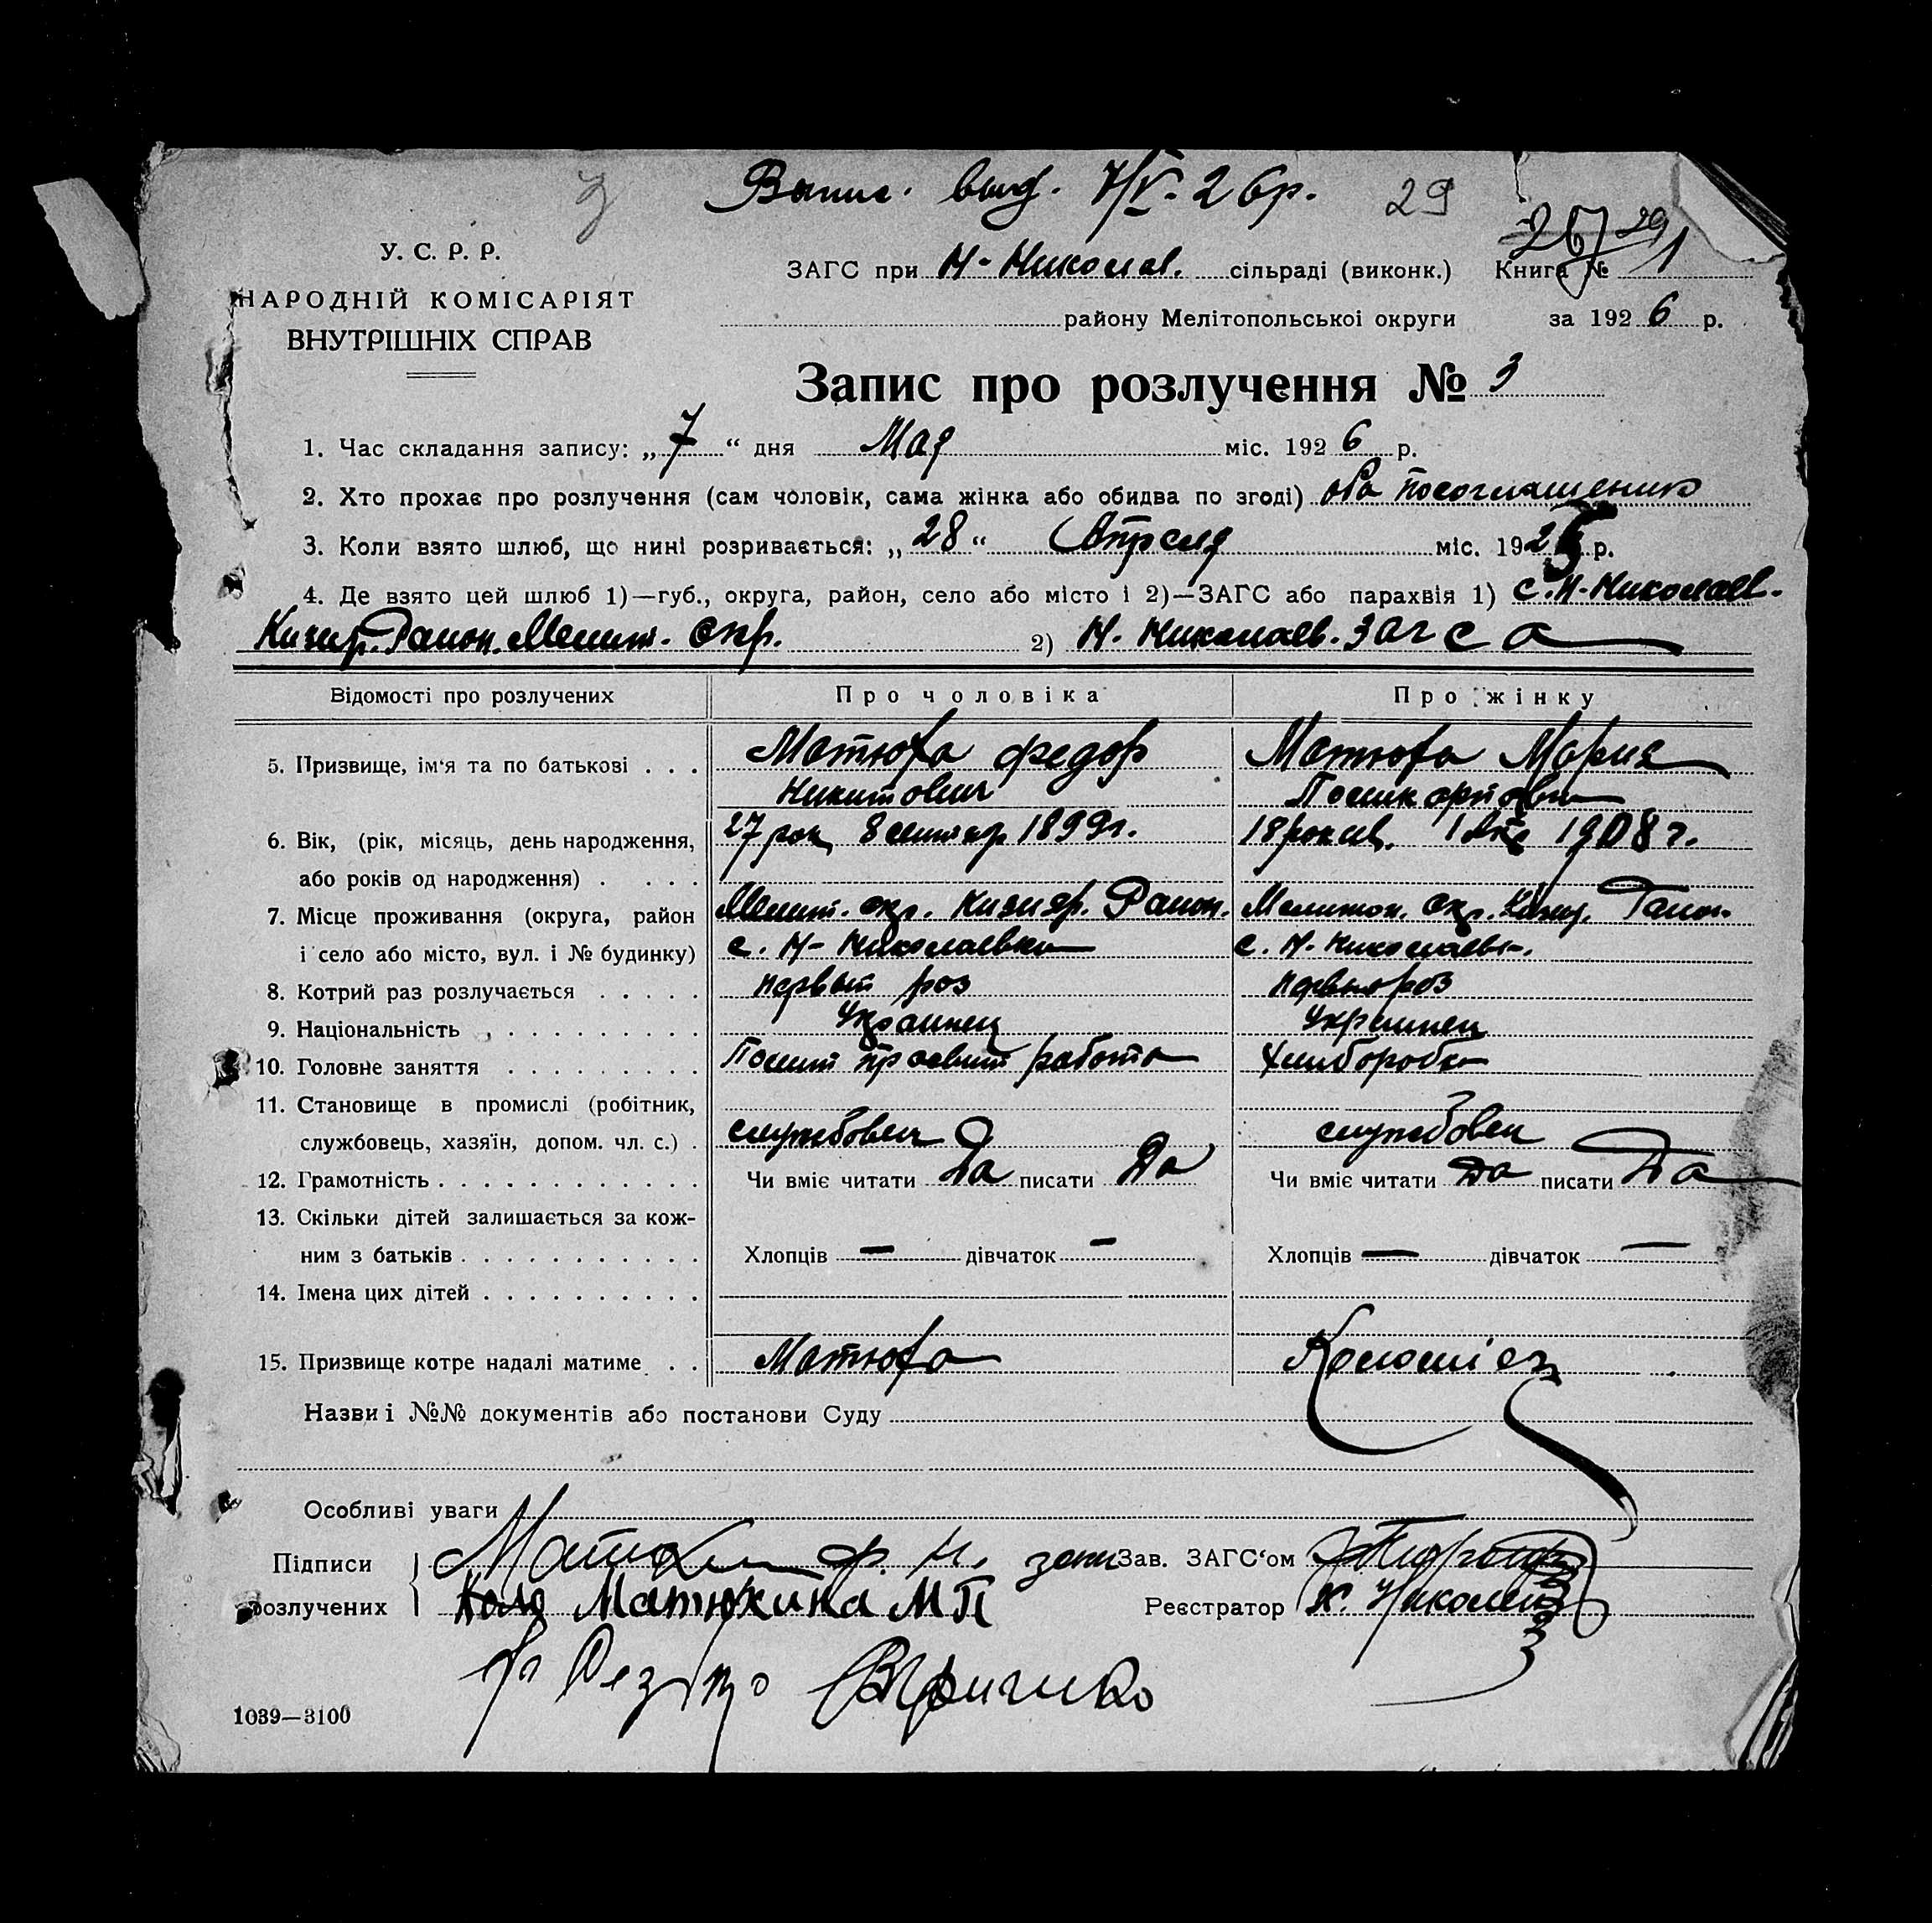 Выпис. выд. 7/V-26р. 29
У. С. Р. Р.
НАРОДНІЙ КОМІСАРІЯТ
ВНУТРІШНІХ СПРАВ
ЗАГС при Н-Николаев. сільраді (виконк.) Книга № 1
району Мелітопольської округи за 1926 р.
Запис про розлучення № 3
1. Час складання запису: „7“ дня Мая міс. 1926 р.
2. Хто прохає про розлучення (сам чоловік, сама жінка або обидва по згоді) оба посоглашению
3. Коли взято шлюб, що нині розривається: „28“ Апреля міс. 1925 р.
4. Де взято цей шлюб 1)—губ., округа, район, село або місто і 2)—ЗАГС або парахвія 1) с. Н-Николаев.
Кизияр. Район. Мелит. окр. 2) Н. Николаев. загса
Відомості про розлучених Про чоловіка Про жінку
5. Призвище, ім‘я та по батькові . . . Матюха Федор Матюха Мария
Никитович Поликарповна
6. Вік, (рік, місяць, день народження, 27 рок 8 сентяр 1899г. 18 роков. 1 1908 г.
або років од народження) . . . .
7. Місце проживання (округа, район Мелит. окр. Кизияр. Район. Мелитоп. окр. Кизияр. Район.
і село або місто, вул. і № будинку) с. Н-Николаевка с. Н. Николаевк.
8. Котрий раз розлучається . . . . . первый раз первый раз
9. Національність . . . . . . . . . . Украинец Украинец
10. Головне заняття . . . . . . . . . Полит просвит работа Хлиборобка
11. Становище в промислі (робітник,
службовець, хазяїн, допом. чл. с.) . службовец службовец
12. Грамотність . . . . . . . . . . . . Чи вміє читати Да писати Да Чи вміє читати Да писати Да
13. Скільки дітей залишається за кож-
ним з батьків . . . . . . . . . . . Хлопців — дівчаток — Хлопців — дівчаток —
14. Імена цих дітей . . . . . . . . . .
15. Призвище котре надалі матиме . . Матюха Коломіец
Назви і №№ документів або постанови Суду
Особливі уваги
Підписи Ф. Н. Зав. ЗАГС‘ом
розлучених Матюхина МП Реєстратор Н.
1039—3100